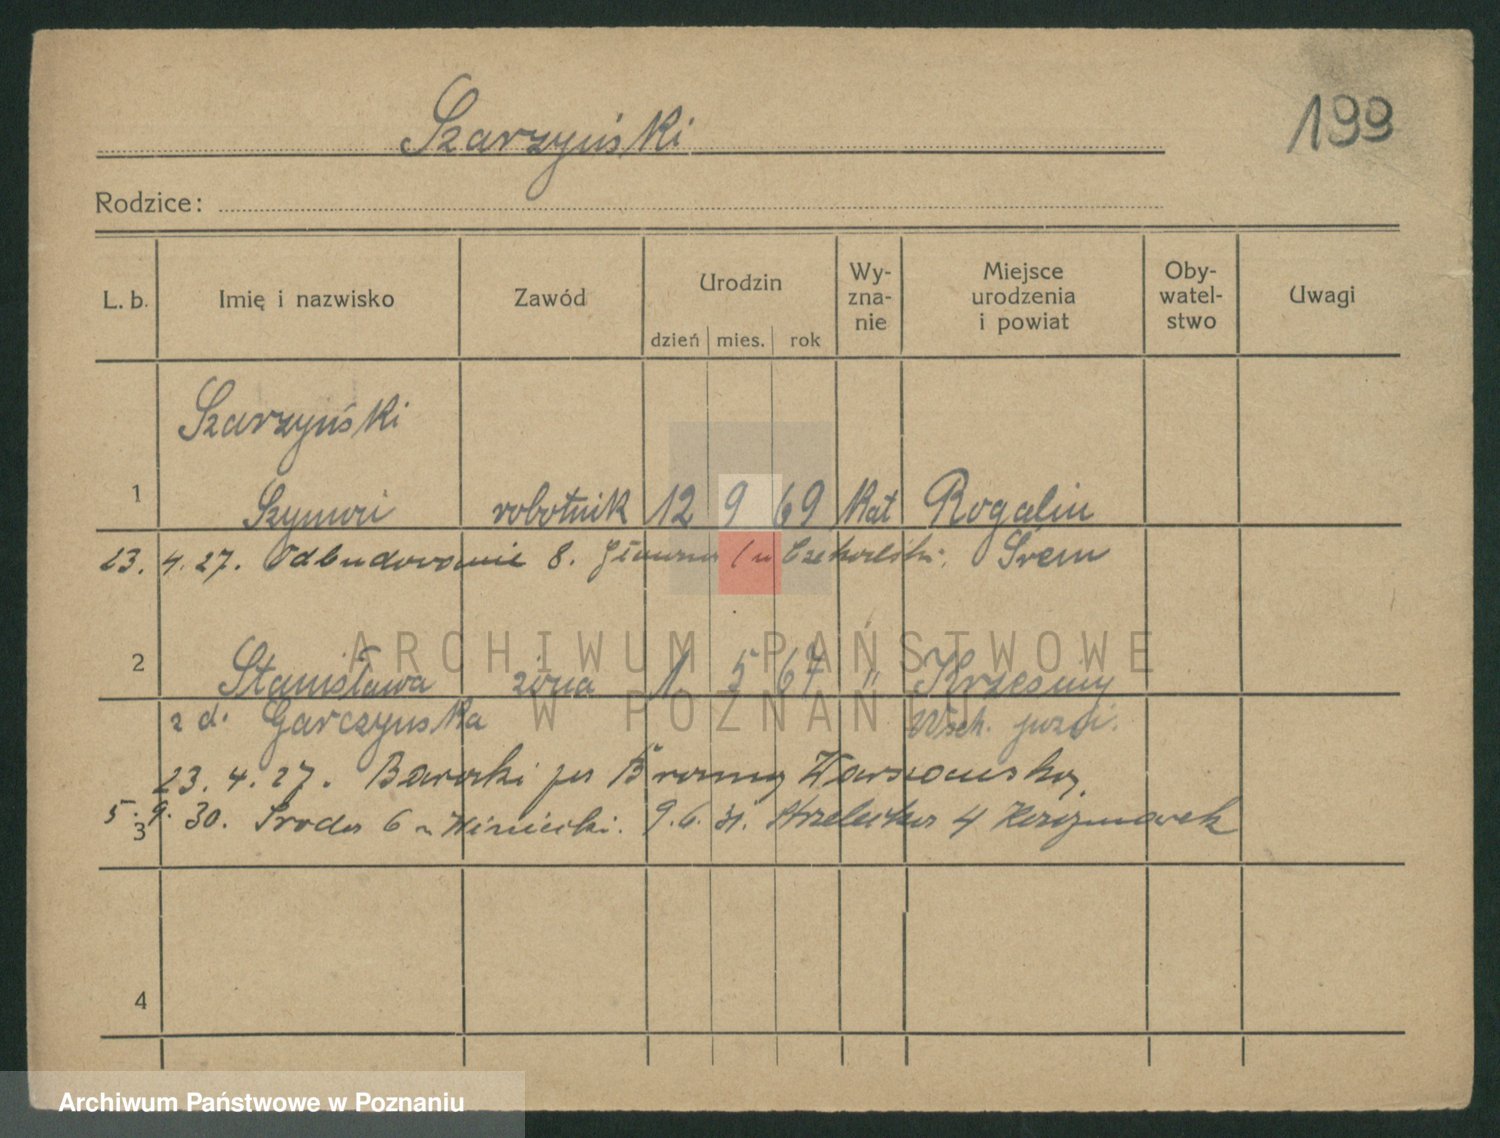 Szarzyński
199
Rodzice:
L. b.
Imię i nazwisko
Zawód
Urodzin
dzień mies. rok
Wy-
zna-
nie
Miejsce
urodzenia
i powiat
Oby-
watel-
stwo
Uwagi
Szarzyński
1 Szymon robotnik 12 9 69 kat Rogalin
23. 4. 27. Odbudowanie 8. Główna Śrem
2 Stanisława żona 1 5 67 " Krzesiny
z d. Garczynska Wsch.
23. 4. 27. Baraki Bramy Warszawskiej
5. 9. 30. Środa 6 9. 6. 31. Strzelecka 4
3
4
ARCHIWUM PAŃSTWOWE
W POZNANIU
Archiwum Państwowe w Poznaniu